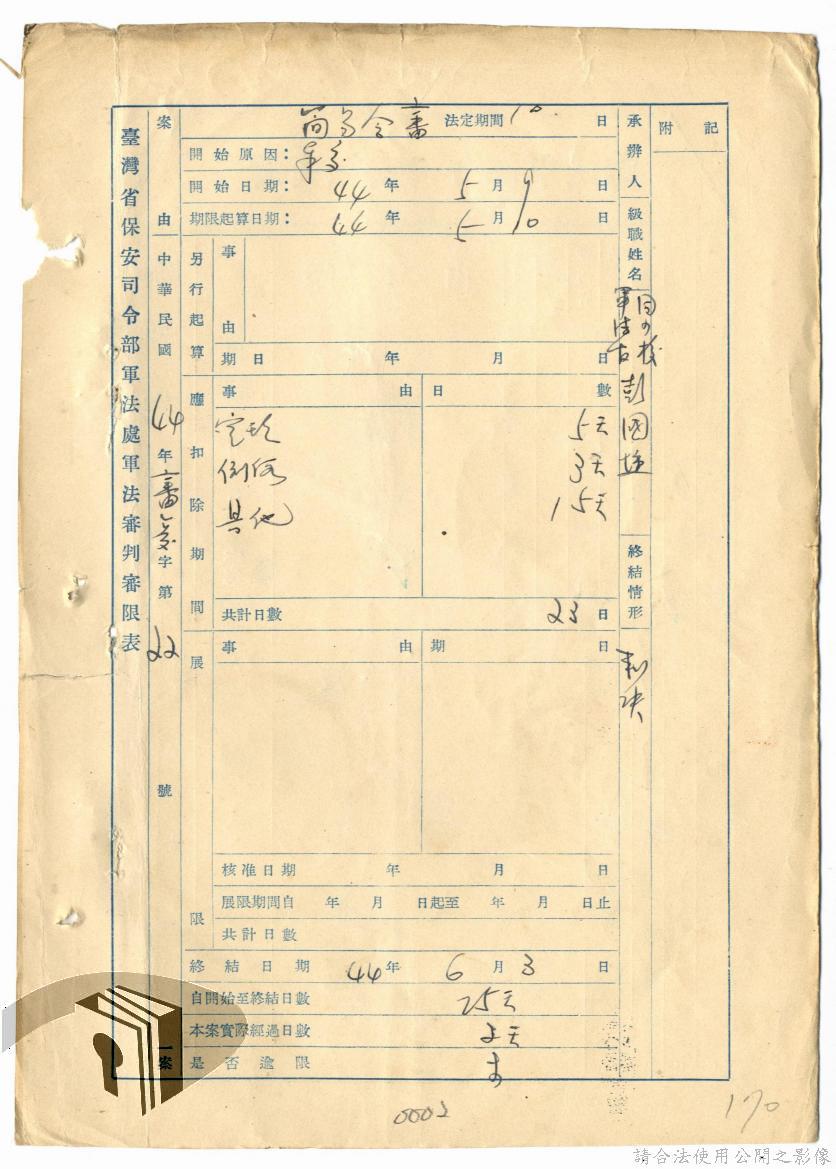 臺灣省保安司令部軍法處軍法審判審限表
案由 中華民國44年審字第22號 一案
審 法定期間10日
開始原因：
開始日期：44年5月9日
期限起算日期：44年5月10日
另行起算
事由
期日 年 月 日
應扣除期間
事由 日數
5天
3天
其他 15天
共計日數 23日
展限
事由 期日
核准日期 年 月 日
展限期間自 年 月 日起至 年 月 日止
共計日數
終結日期 44年6月3日
自開始至終結日數 25天
本案實際經過日數 2天
是否逾限 否
承辦人級職姓名
同少校
軍法官
彭國
終結情形
判決
附記
0002
170
請合法使用公開之影像